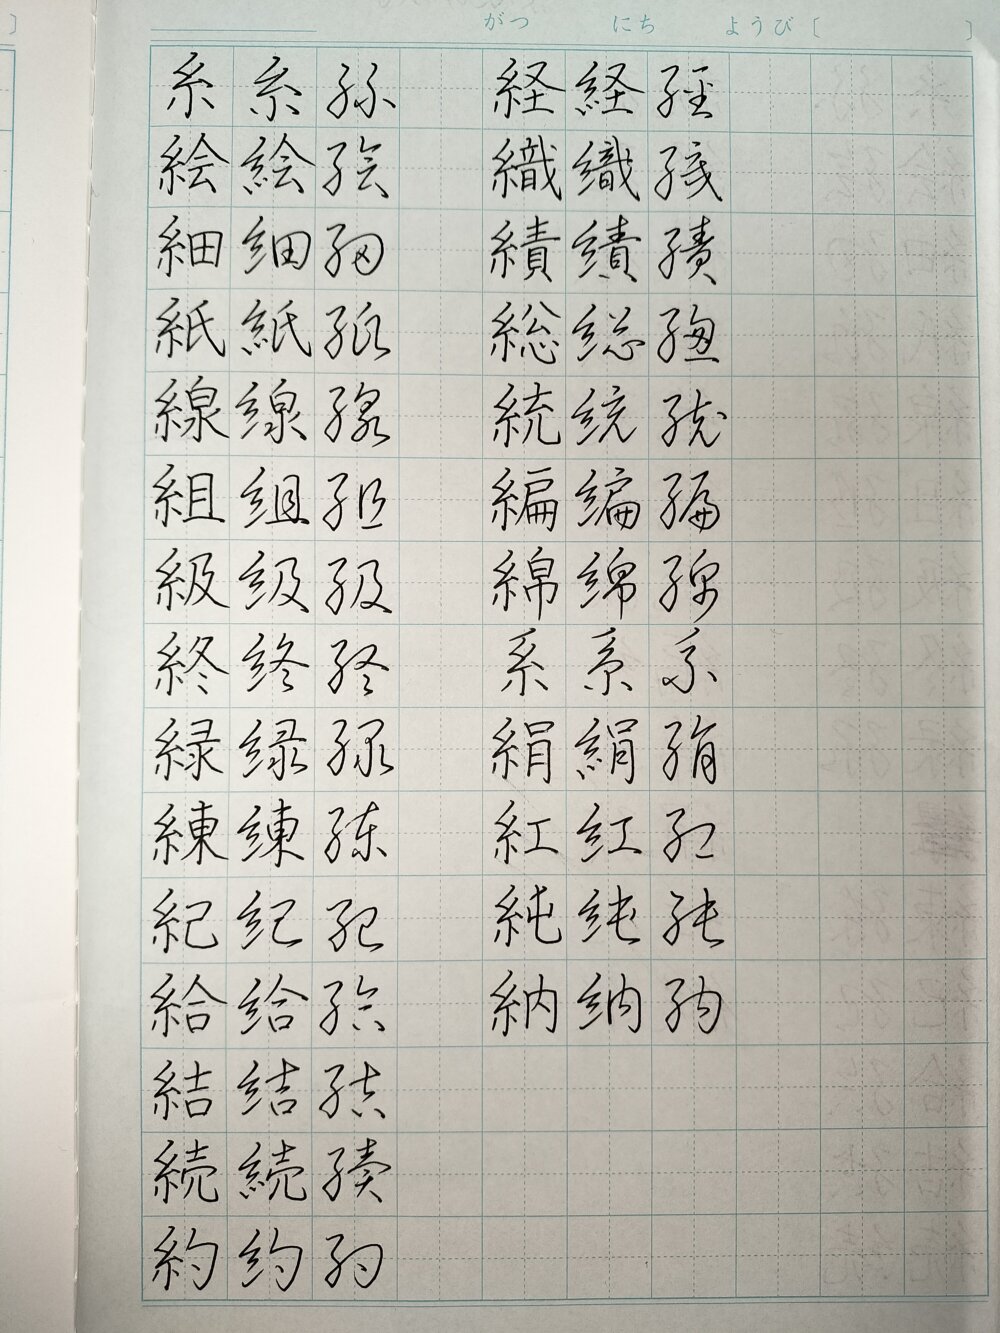 がつ にち ようび〔 〕
糸 糸 糸 経 経 経
絵 絵 絵 織 織 織
細 細 細 績 績 績
紙 紙 紙 総 総 総
線 線 線 統 統 統
組 組 組 編 編 編
級 級 級 綿 綿 綿
終 終 終 系 系 系
緑 緑 緑 絹 絹 絹
練 練 練 紅 紅 紅
紀 紀 紀 純 純 純
給 給 給 納 納 納
結 結 結
続 続 続
約 約 約